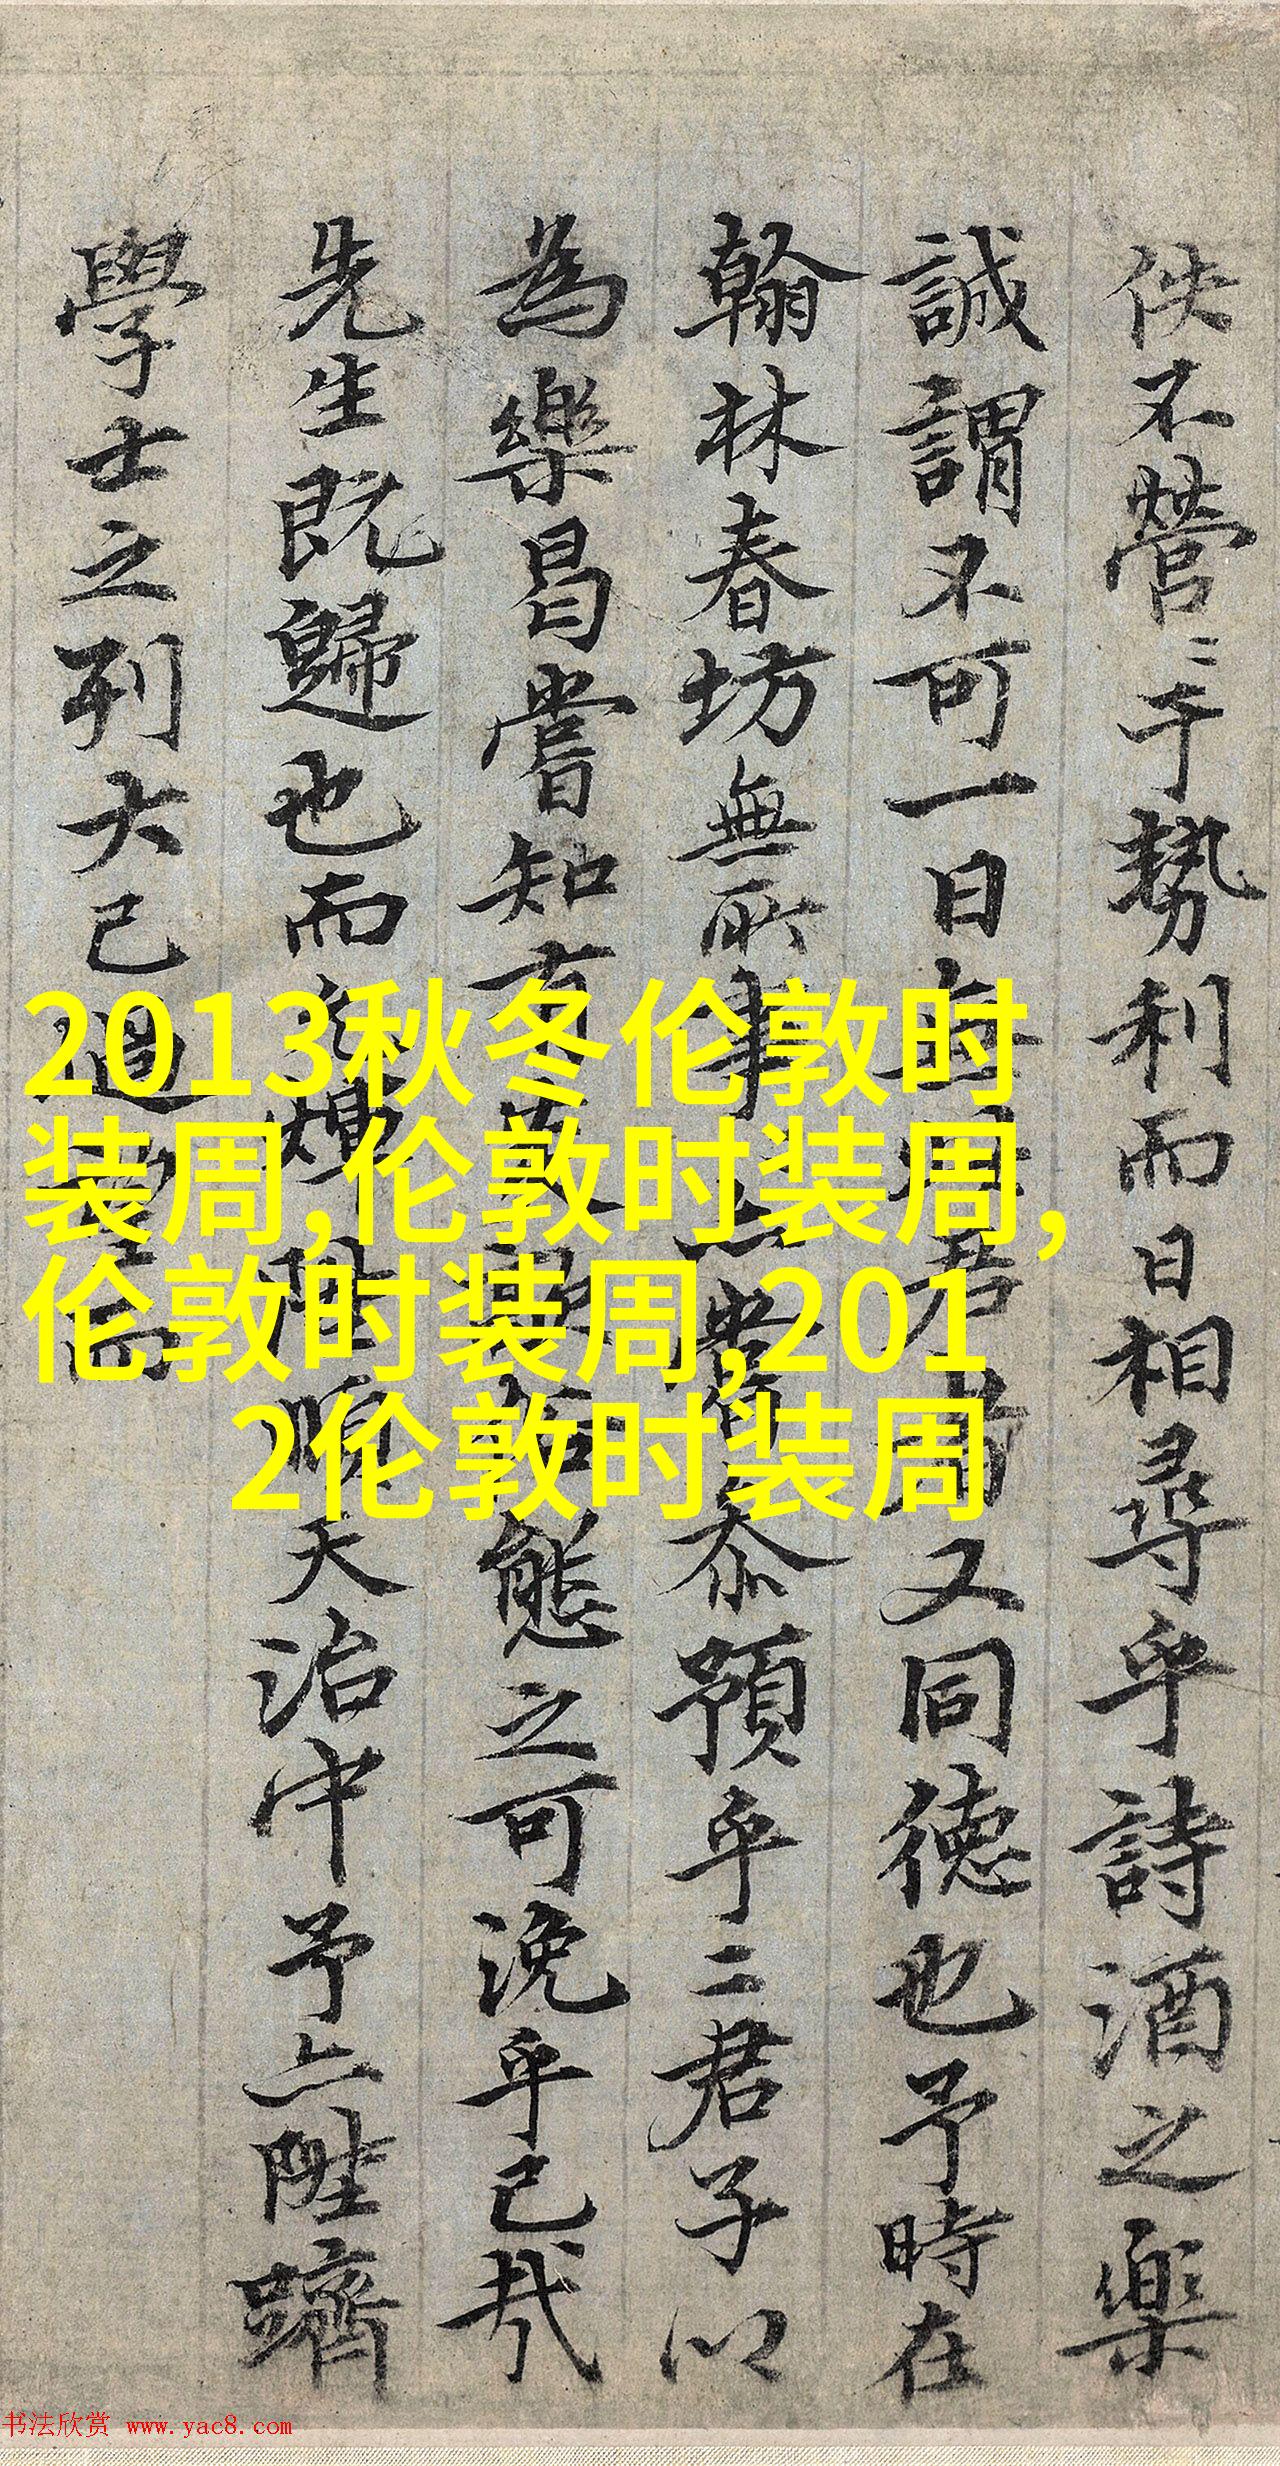 2013秋冬伦敦时
装周,伦敦时装周,
伦敦时装周,201
2伦敦时装周
佚不營〻于勢利而日相尋乎詩酒之樂
誠謂不可一日君者又同德也予時在
翰林春坊無所事忝預乎二君子以
為樂曷嘗知有態之可浼乎己哉
先生既歸也而順天治中予亦陞躋
學士之列大已過而
书法欣赏 www.yac8.com